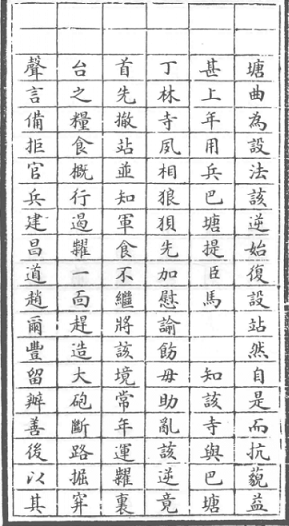 塘曲為設法該逆始復設站然自是而抗藐益
甚上年用兵巴塘提臣馬　　知該寺與巴塘
丁林寺夙相狼狽先加慰諭飭毋助亂該逆竟
首先撤站並知軍食不繼將該境常年運糶裏
台之糧食概行遏糶一面趕造大砲斷路掘穽
聲言備拒官兵建昌道趙爾豐留辦善後以其